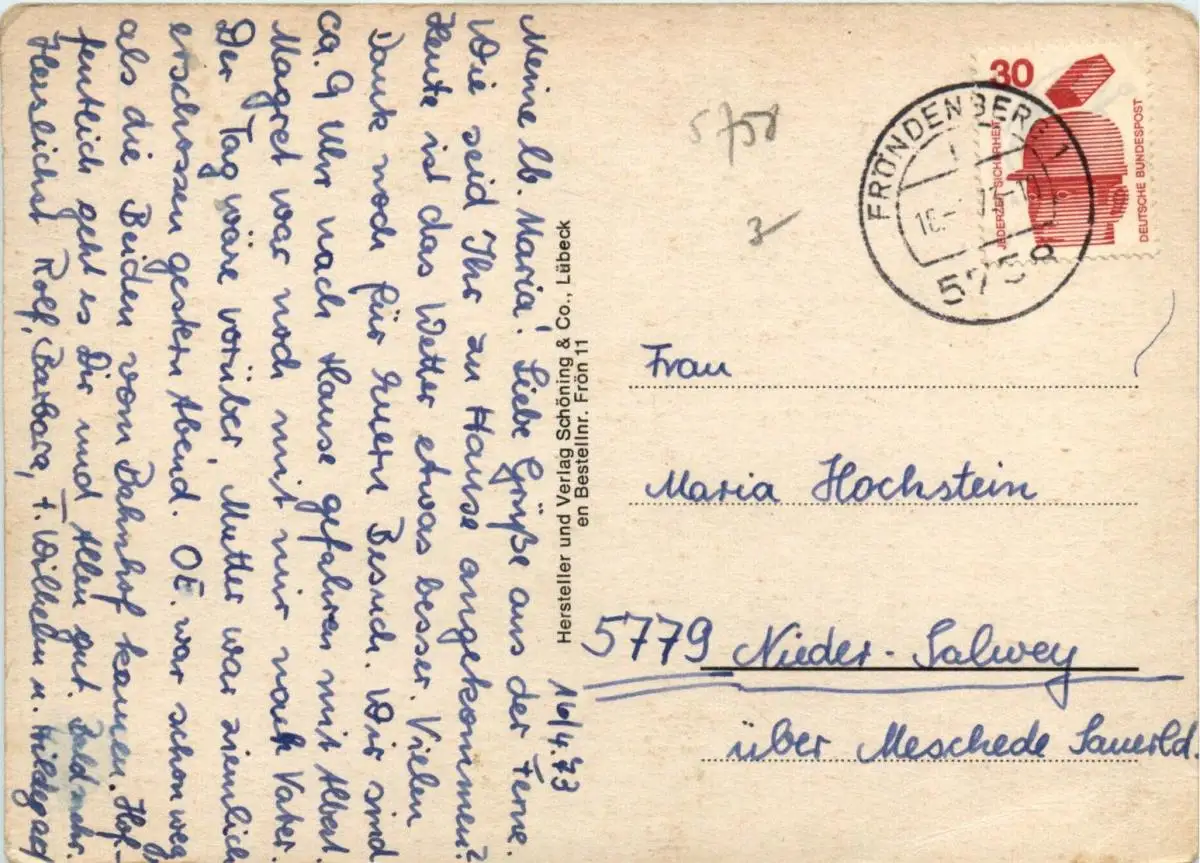 16/4.73
Meine lb. Maria! Liebe Grüße aus der Ferne.
Wie seid Ihr zu Hause angekommen?
Heute ist das Wetter etwas besser. Vielen
Dank noch für Euern Besuch. Wir sind
ca. 9 Uhr nach Hause gefahren mit Albert.
Magret war noch mit mir nach Vater.
Der Tag wäre vorüber, Mutter war ziemlich
erschossen gestern Abend. OE. war schon weg
als die Beiden vom Bahnhof kamen. Hof-
fentlich geht es Dir und Allen gut. Bald mehr.
Herzlichst Rolf, Barbara, F. Wilhelm u. Hildegard
Hersteller und Verlag Schöning & Co., Lübeck
en Bestellnr. Frön 11
5758
3
30
JEDERZEIT SICHERHEIT
DEUTSCHE BUNDESPOST
FRÖNDENBERG 1
5758
Frau
Maria Hochstein
5779 Nieder-Salwey
über Meschede Sauerld.